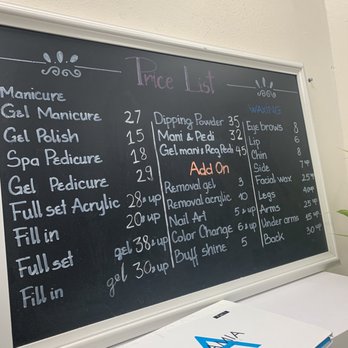 Price List
Manicure
Gel Manicure 27
Gel Polish 15
Spa Pedicure 18
Gel Pedicure 29
Full set Acrylic 28 & up
Fill in 20 & up
Full set gel 38 & up
Fill in gel 30 & up
Dipping Powder 35
Mani & Pedi 32
Gel mani & Reg Pedi 45
Add On
Removal gel 3
Removal acrylic 10
Nail Art 5 & up
Color Change 6 & up
Buff shine 5
WAXING
Eye brows 8
Lip 6
Chin 8
Side 7 up
Facial wax 25 up
Legs 40 up
Arms 25 up
Under arms 15 up
Back 30 up